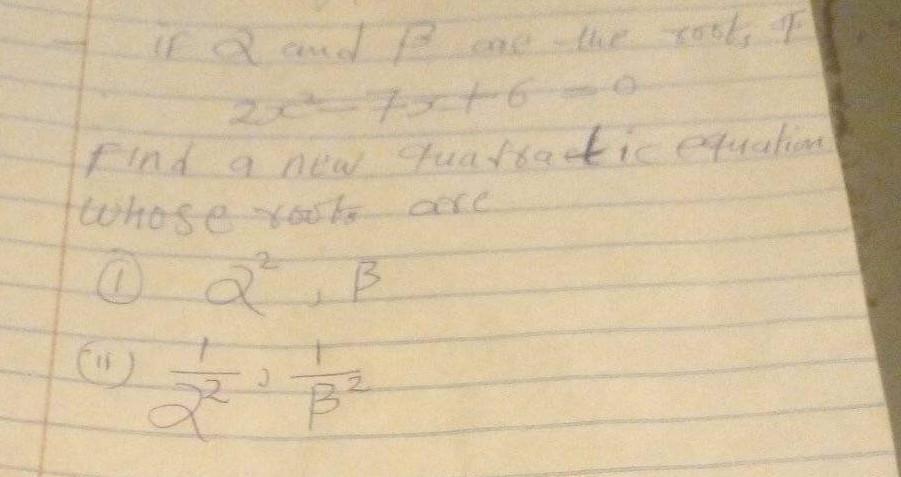 if α and β are the roots of
2x² - 7x + 6 = 0
Find a new quadractic equation
whose roots are
(i) α², β
(ii) 1/α², 1/β²